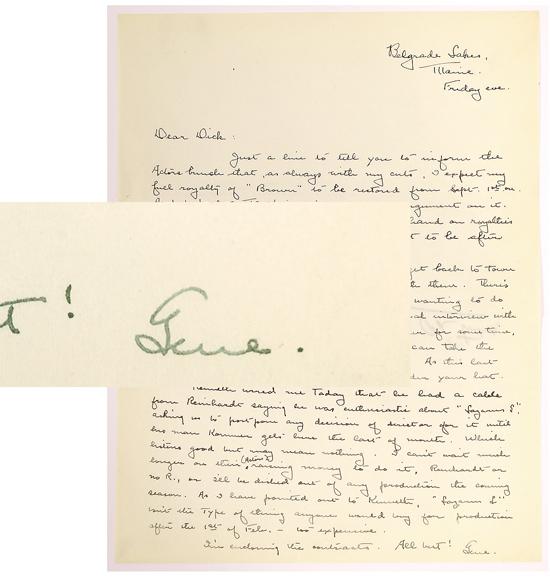 Belgrade Lakes,
Maine.
Friday eve.
Dear Dick:
Just a line to tell you to inform the
Actors bunch that, as always with my cuts, I expect my
full royalty of "Brown" to be restored from Sept. 1st on.
argument on it.
on royalties
t to be after
get back to town
them. There's
wanting to do
interview with
for some time,
can take the
As this last
your hat.
t! Gene.
Kenneth wired me today that he had a cable
from Reinhardt saying he was enthusiastic about "Lazarus L",
asking us to postpone any decision of director for it until
his man Kommer gets here the last of month. Which
listens good but may mean nothing. I can't wait much
longer on their (Actor's) raising money to do it, Reinhardt or
no R., or I'll be dished out of any production the coming
season. As I have pointed out to Kenneth, "Lazarus L"
isn't the type of thing anyone would try for production
after the 1st of Feb. - too expensive.
I'm enclosing the contracts. All best! Gene.